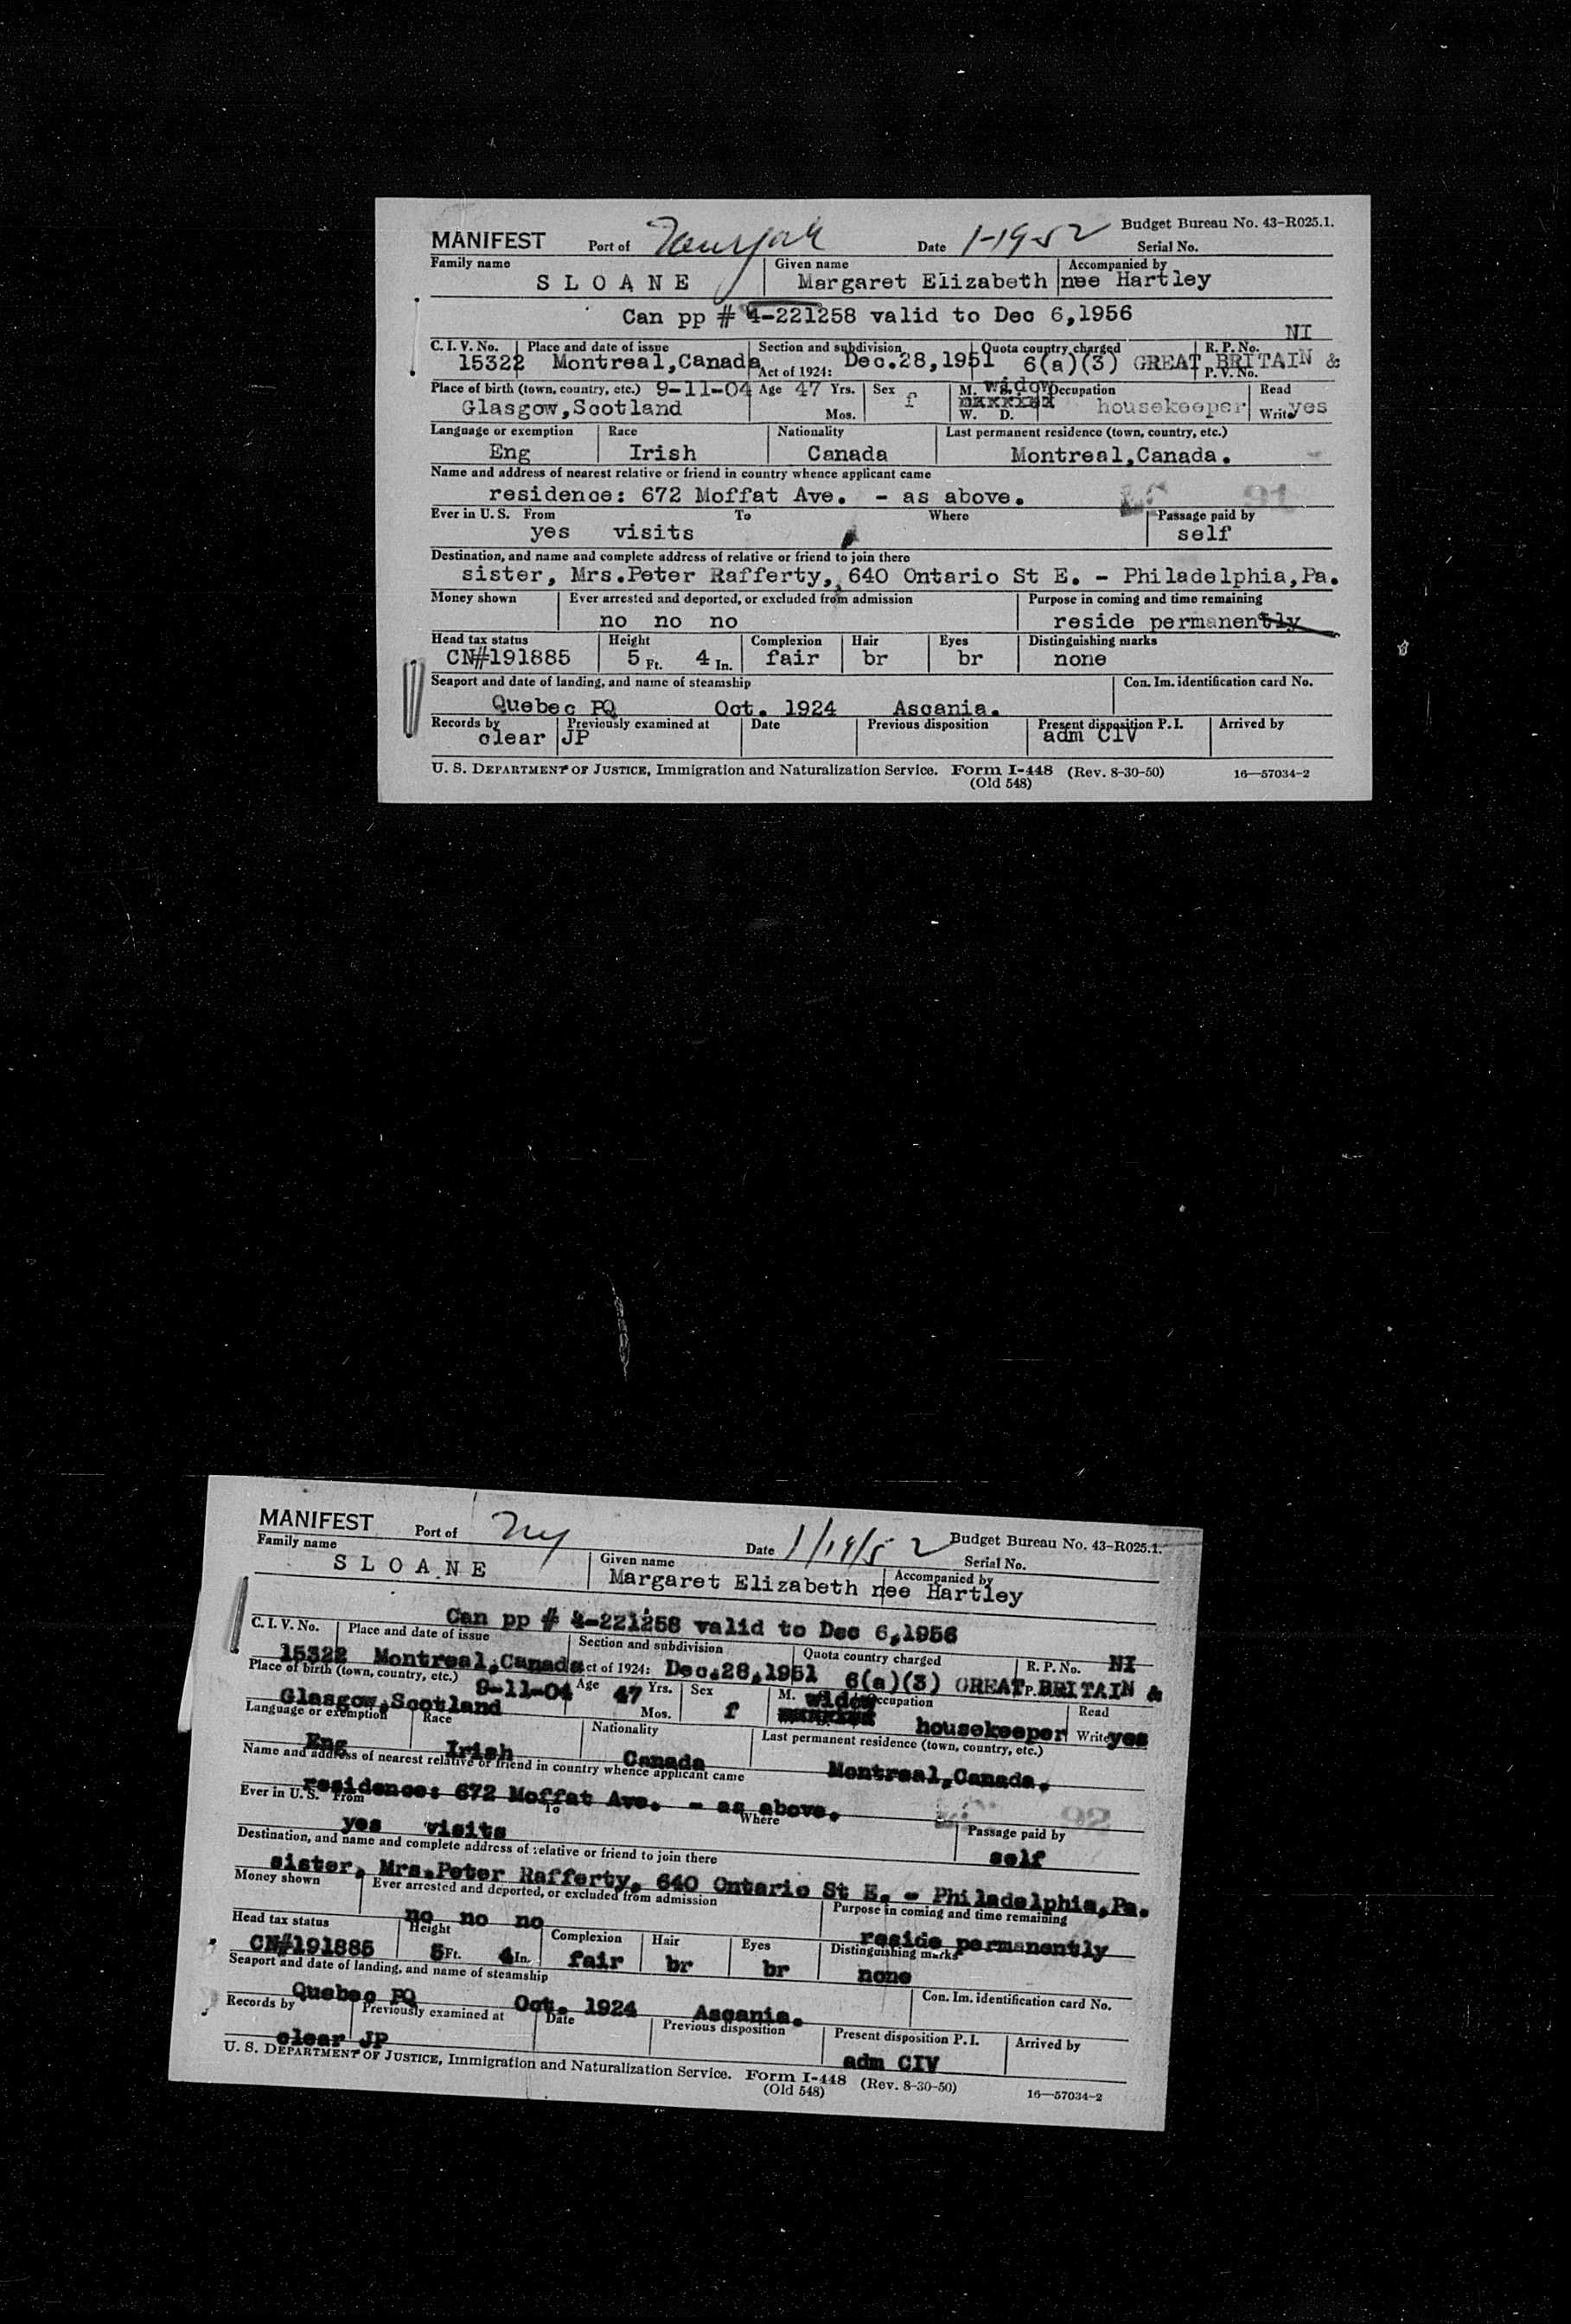 MANIFEST Port of New York Date 1-19-52 Budget Bureau No. 43-R025.1.
Serial No.
Family name Given name Accompanied by
SLOANE Margaret Elizabeth nee Hartley
Can pp # 4-221258 valid to Dec 6,1956
NI
C. I. V. No. Place and date of issue Section and subdivision Quota country charged R. P. No.
15322 Montreal,Canada Act of 1924: Dec.28,1951 6(a)(3) GREAT BRITAIN &
P. V. No.
Place of birth (town, country, etc.) 9-11-04 Age 47 Yrs. Sex f M. widow Occupation Read
Glasgow,Scotland Mos. W. D. housekeeper Write yes
Language or exemption Race Nationality Last permanent residence (town, country, etc.)
Eng Irish Canada Montreal,Canada.
Name and address of nearest relative or friend in country whence applicant came
residence: 672 Moffat Ave. - as above. 91
Ever in U. S. From To Where Passage paid by
yes visits self
Destination, and name and complete address of relative or friend to join there
sister, Mrs.Peter Rafferty, 640 Ontario St E. - Philadelphia,Pa.
Money shown Ever arrested and deported, or excluded from admission Purpose in coming and time remaining
no no no reside permanently
Head tax status Height Complexion Hair Eyes Distinguishing marks
CN#191885 5 Ft. 4 In. fair br br none
Seaport and date of landing, and name of steamship Con. Im. identification card No.
Quebec PQ Oct. 1924 Ascania.
Records by Previously examined at Date Previous disposition Present disposition P. I. Arrived by
clear JP adm CIV
U. S. DEPARTMENT OF JUSTICE, Immigration and Naturalization Service. Form I-448 (Rev. 8-30-50) 16—57034-2
(Old 548)
MANIFEST Port of NY Date 1/19/52 Budget Bureau No. 43-R025.1.
Serial No.
Family name Given name Accompanied by
SLOANE Margaret Elizabeth nee Hartley
Can pp # 4-221258 valid to Dec 6,1956
C. I. V. No. Place and date of issue Section and subdivision Quota country charged R. P. No. NI
15322 Montreal,Canada Act of 1924: Dec.28,1951 6(a)(3) GREAT BRITAIN &
Place of birth (town, country, etc.) 9-11-04 Age 47 Yrs. Sex f M. widow Occupation Read
Glasgow,Scotland Mos. housekeeper Write yes
Language or exemption Race Nationality Last permanent residence (town, country, etc.)
Eng Irish Canada Montreal,Canada.
Name and address of nearest relative or friend in country whence applicant came
residence: 672 Moffat Ave. - as above. 92
Ever in U. S. From To Where Passage paid by
yes visits self
Destination, and name and complete address of relative or friend to join there
sister, Mrs.Peter Rafferty, 640 Ontario St E. - Philadelphia,Pa.
Money shown Ever arrested and deported, or excluded from admission Purpose in coming and time remaining
no no no reside permanently
Head tax status Height Complexion Hair Eyes Distinguishing marks
CN#191885 5 Ft. 4 In. fair br br none
Seaport and date of landing, and name of steamship Con. Im. identification card No.
Quebec PQ Oct. 1924 Ascania.
Records by Previously examined at Date Previous disposition Present disposition P. I. Arrived by
clear JP adm CIV
U. S. DEPARTMENT OF JUSTICE, Immigration and Naturalization Service. Form I-448 (Rev. 8-30-50) 16—57034-2
(Old 548)